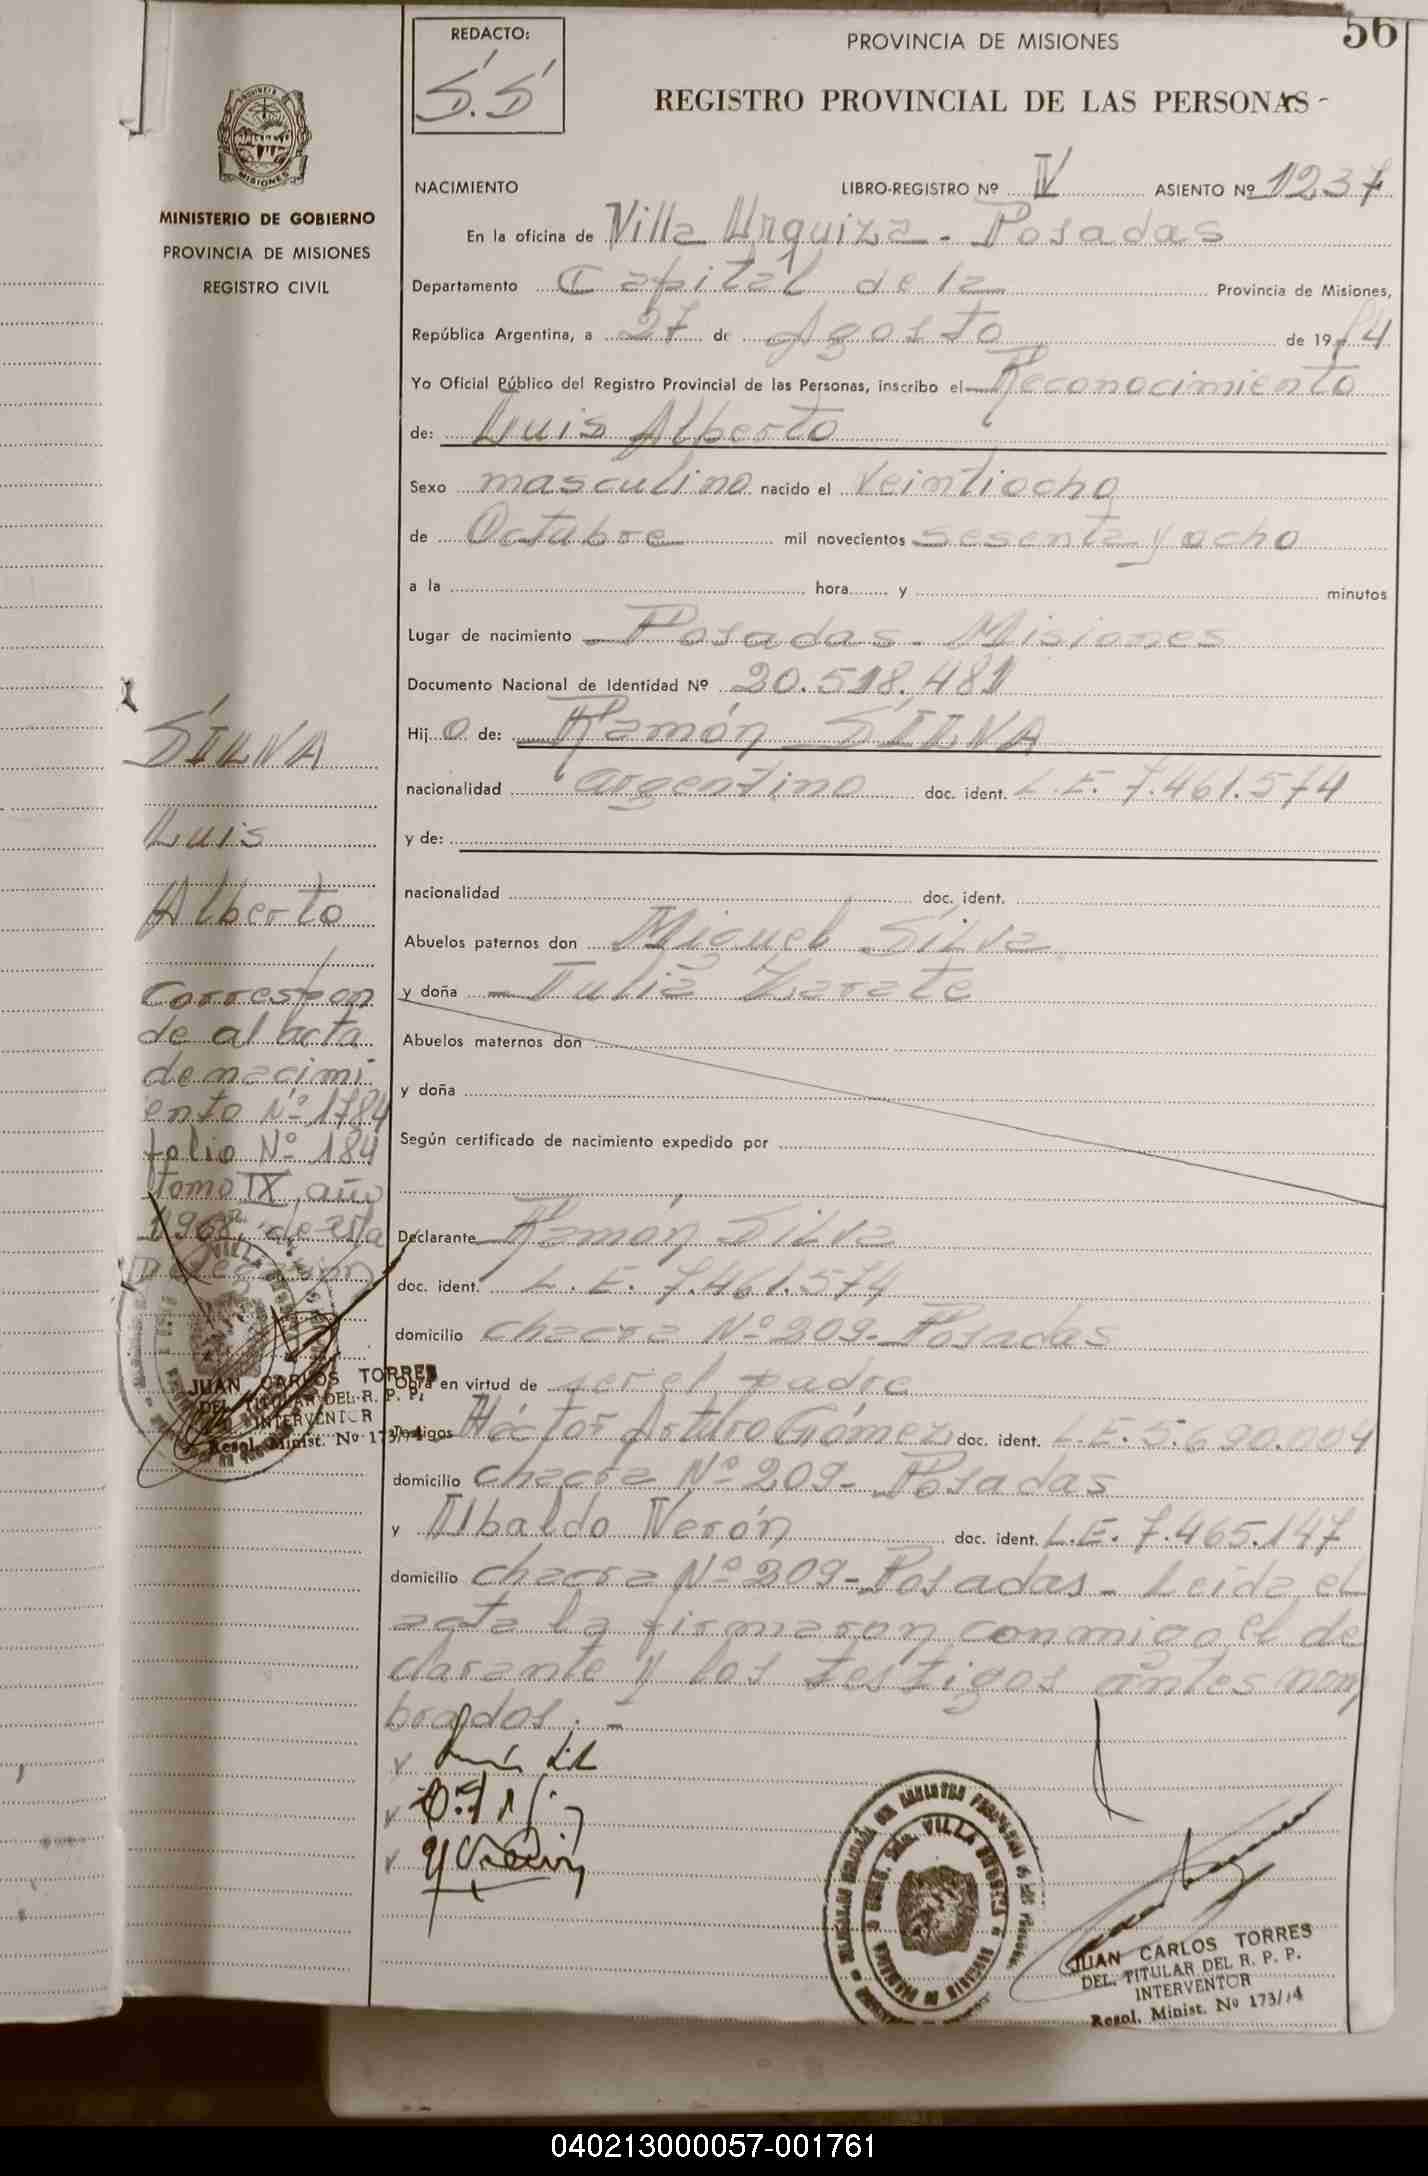 56
REDACTO:
S.S
PROVINCIA DE MISIONES
REGISTRO PROVINCIAL DE LAS PERSONAS
MINISTERIO DE GOBIERNO
PROVINCIA DE MISIONES
REGISTRO CIVIL
NACIMIENTO LIBRO-REGISTRO Nº IV ASIENTO Nº 1237
En la oficina de Villa Urquiza - Posadas
Departamento Capital de la Provincia de Misiones,
República Argentina, a 27 de Agosto de 19 4
Yo Oficial Público del Registro Provincial de las Personas, inscribo el Reconocimiento
de: Luis Alberto
Sexo masculino nacido el veintiocho
de Octubre mil novecientos sesenta y ocho
a la hora y minutos
Lugar de nacimiento Posadas - Misiones
Documento Nacional de Identidad Nº 20.518.481
Hij o de: Ramón SILVA
nacionalidad argentino doc. ident. L.E. 7.461.574
y de:
nacionalidad doc. ident.
Abuelos paternos don Miguel Silva
y doña - Julia Zarate
Abuelos maternos don
y doña
Según certificado de nacimiento expedido por
Declarante Ramón Silva
doc. ident. L.E. 7.461.574
domicilio chacra Nº 209 - Posadas
Obra en virtud de ser el padre
Testigos Héctor Arturo Gómez doc. ident. L.E. 5.690.004
domicilio chacra Nº 209 - Posadas
y Ubaldo Verón doc. ident. L.E. 7.465.147
domicilio chacra Nº 209 - Posadas - Leida el
acta la firmaron conmigo el de
clarante y los testigos antes nom
brados. -
SILVA
Luis
Alberto
Correspon
de al acta
de nacimi
ento Nº 1784
folio Nº 184
tomo IX año
1968 de esta
Delegación
JUAN CARLOS TORRES
DEL. TITULAR DEL R. P. P.
INTERVENTOR
Resol. Minist. Nº 173/74
VILLA
JUAN CARLOS TORRES
DEL. TITULAR DEL R. P. P.
INTERVENTOR
Resol. Minist. Nº 173/74
040213000057-001761